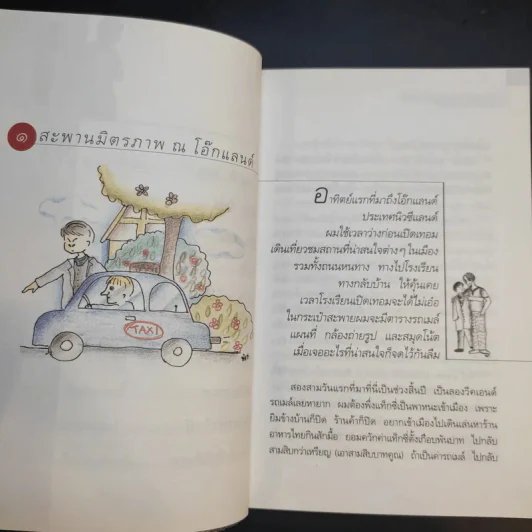 ๑ สะพานมิตรภาพ ณ โอ๊กแลนด์
TAXI
อาทิตย์แรกที่มาถึงโอ๊กแลนด์
ประเทศนิวซีแลนด์
ผมใช้เวลาว่างก่อนเปิดเทอม
เดินเที่ยวชมสถานที่น่าสนใจต่างๆ ในเมือง
รวมทั้งถนนหนทาง ทางไปโรงเรียน
ทางกลับบ้าน ให้คุ้นเคย
เวลาโรงเรียนเปิดเทอมจะได้ไม่เอ๋อ
ในกระเป๋าสะพายผมจะมีตารางรถเมล์
แผนที่ กล้องถ่ายรูป และสมุดโน้ต
เมื่อเจออะไรที่น่าสนใจก็จดไว้กันลืม
สองสามวันแรกที่มาที่นี่เป็นช่วงสิ้นปี เป็นลองวีคเอนด์
รถเมล์เลยหายาก ผมต้องพึ่งแท็กซี่เป็นพาหนะเข้าเมือง เพราะ
ยิมข้างบ้านก็ปิด ร้านค้าก็ปิด อยากเข้าเมืองไปเดินเล่นหาร้าน
อาหารไทยกินสักมื้อ ยอมควักค่าแท็กซี่ตั้งเกือบพันบาท ไปกลับ
สามสิบกว่าเหรียญ (เอาสามสิบบาทคูณ) ถ้าเป็นค่ารถเมล์ ไปกลับ